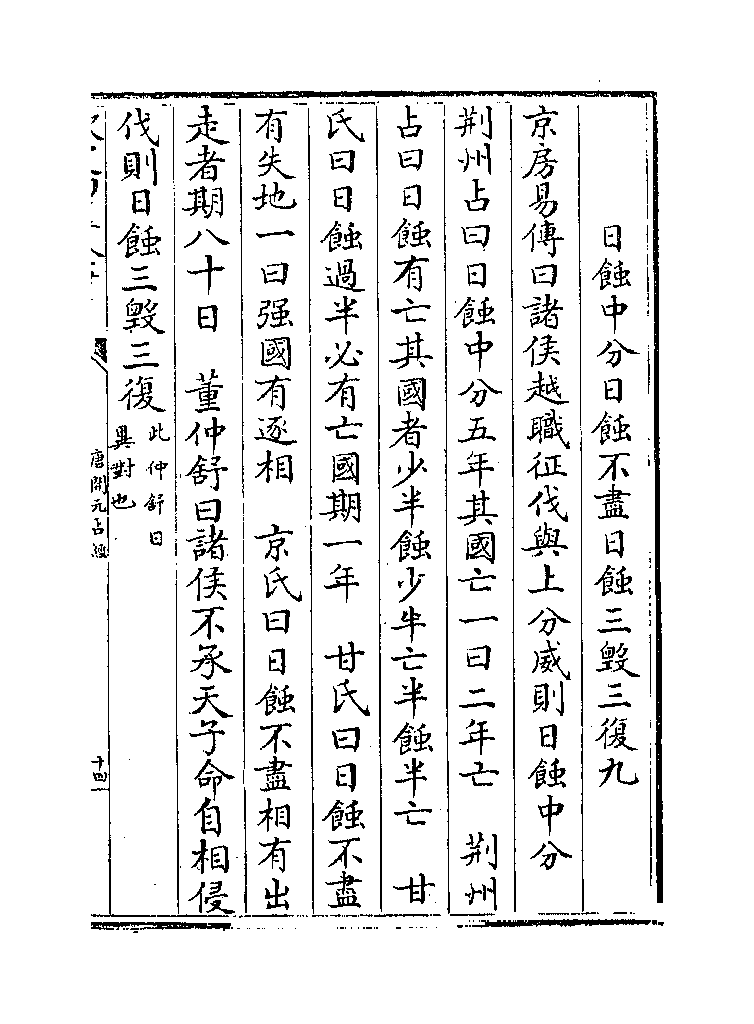 日蝕中分日蝕不盡日蝕三毀三復九
京房易傳曰諸侯越職征伐與上分威則日蝕中分
荆州占曰日蝕中分五年其國亡一曰二年亡　荆州
占曰日蝕有亡其國者少半蝕少半亡半蝕半亡　甘
氏曰日蝕過半必有亡國期一年　甘氏曰日蝕不盡
有失地一曰强國有逐相　京氏曰日蝕不盡相有出
走者期八十日　董仲舒曰諸侯不承天子命自相侵
伐則日蝕三毀三復此仲舒日
異對也
唐開元占經
十四